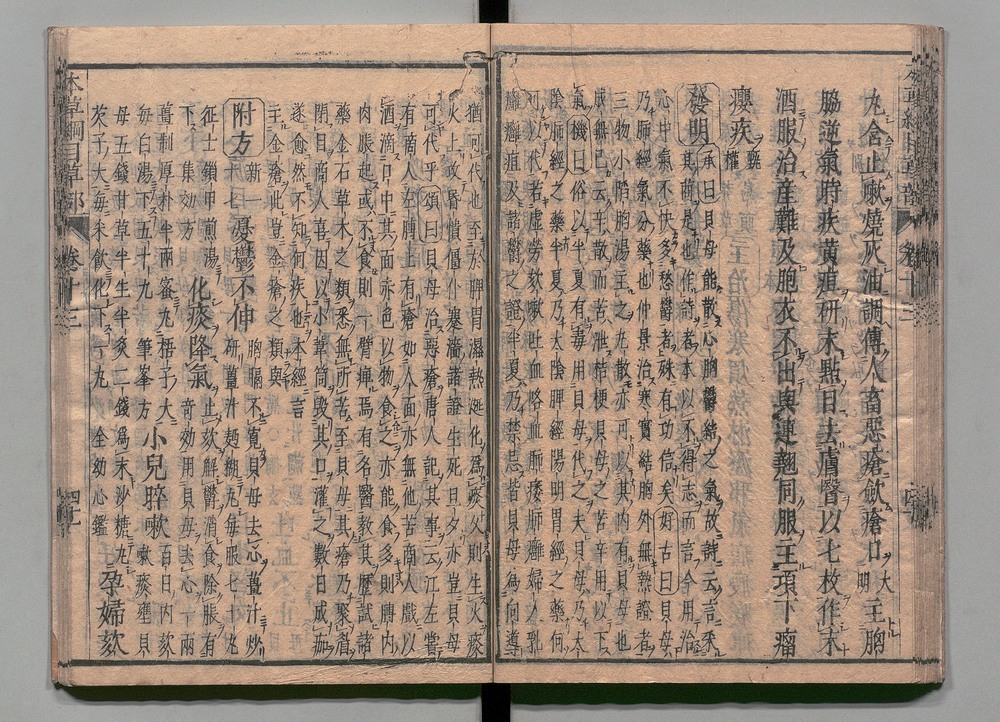 丸含止嗽燒灰油調傅人畜惡瘡斂瘡口大明主胸
脇逆氣時疾黃疸研末點目去膚瞖以七枚作末
酒服治產難及胞衣不出與連翹同服主項下瘤
癭疾甄權
發明承曰貝母能散心胸鬱結之氣故詩云言采
其蝱是也作詩者本以不得志而言今用治
心中氣不快多愁鬱者殊有功信矣好古曰貝母
乃肺經氣分藥也仲景治寒實結胸外無熱證者
三物小陷胸湯主之白散亦可以其內有貝母也
成無已云辛散而苦泄桔梗貝母之苦辛用以下
氣機曰俗以半夏有毒用貝母代之夫貝母乃太
陰肺經之藥半夏乃太陰脾經陽明胃經之藥何
可以代若虛勞欬嗽吐血咯血肺痿肺癰婦人乳
癰癰疽及諸鬱之證半夏乃禁忌皆貝母為向導
猶可代也至於脾胃濕熱涎化為痰久則生火痰
火上攻昏憒僵仆蹇濇諸證生死旦夕亦豈貝母
可代乎頌曰貝母治惡瘡唐人記其事云江左嘗
有商人左膊上有瘡如人面亦無他苦商人戲以
酒滴口中其面赤色以物食之亦能食多則膊內
肉脹起或不食則一臂痺焉有名醫教其歷試諸
藥金石草木之類悉無所苦至貝母其瘡乃聚眉
閉目商人喜因以小葦筒毀其口灌之數日成痂
遂愈然不知何疾也本經言
主金瘡此豈金瘡之類與
附方新一憂鬱不伸胸膈不寬貝母去心薑汁炒
研薑汁麵糊丸每服七十丸
征士鎖甲煎湯
下集効方化痰降氣止欬解鬱消食除脹有
奇効用貝母去心一兩
薑制厚朴半兩蜜丸梧子大
每白湯下五十丸筆峯方小兒晬嗽百日內欬
嗽痰壅貝
母五錢甘草半生半炙二錢為末沙糖丸
芡子大每米飲化下一丸全幼心鑑孕婦欬
本草綱目草部 卷十三